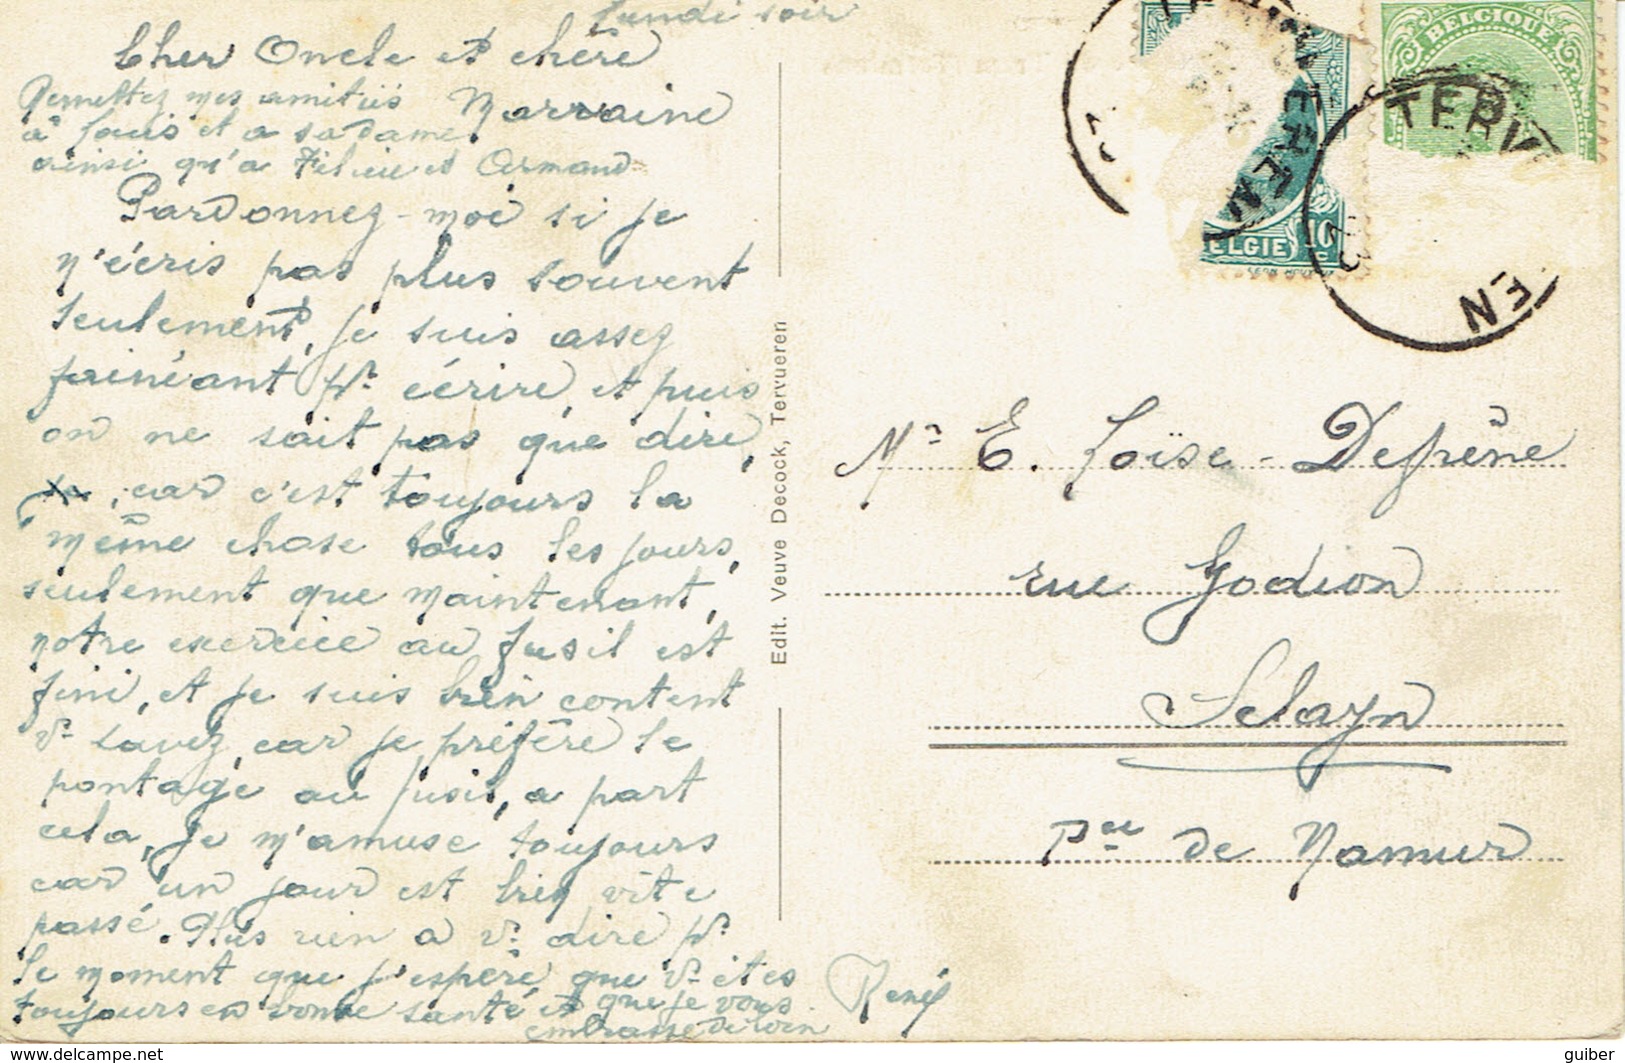 Lundi soir
Cher Oncle et chère
Marraine
Permettez mes amitiés
à Louis et a sa dame
ainsi qu'a Félicie et Armand
Pardonnez-moi si je
n'écris pas plus souvent
seulement, je suis assez
fainéant pr écrire, et puis
on ne sait pas que dire,
car c'est toujours la
même chose tous les jours,
seulement que maintenant,
notre exercice au fusil est
fini, et je suis bien content
vs savez, car je préfère le
pontage au fusil, a part
cela, je m'amuse toujours
car un jour est bien vite
passé. Plus rien a vs dire pr
le moment que j'espère que vs êtes
toujours en bonne santé et que je vous
embrasse de loin
René
Edit. Veuve Decock, Tervueren
BELGIQUE
TERV
EN
EREN
ELGIE 10
c
Mr E. Loïse-Defrêne
rue Godion
Sclayn
Pce de Namur
guiber